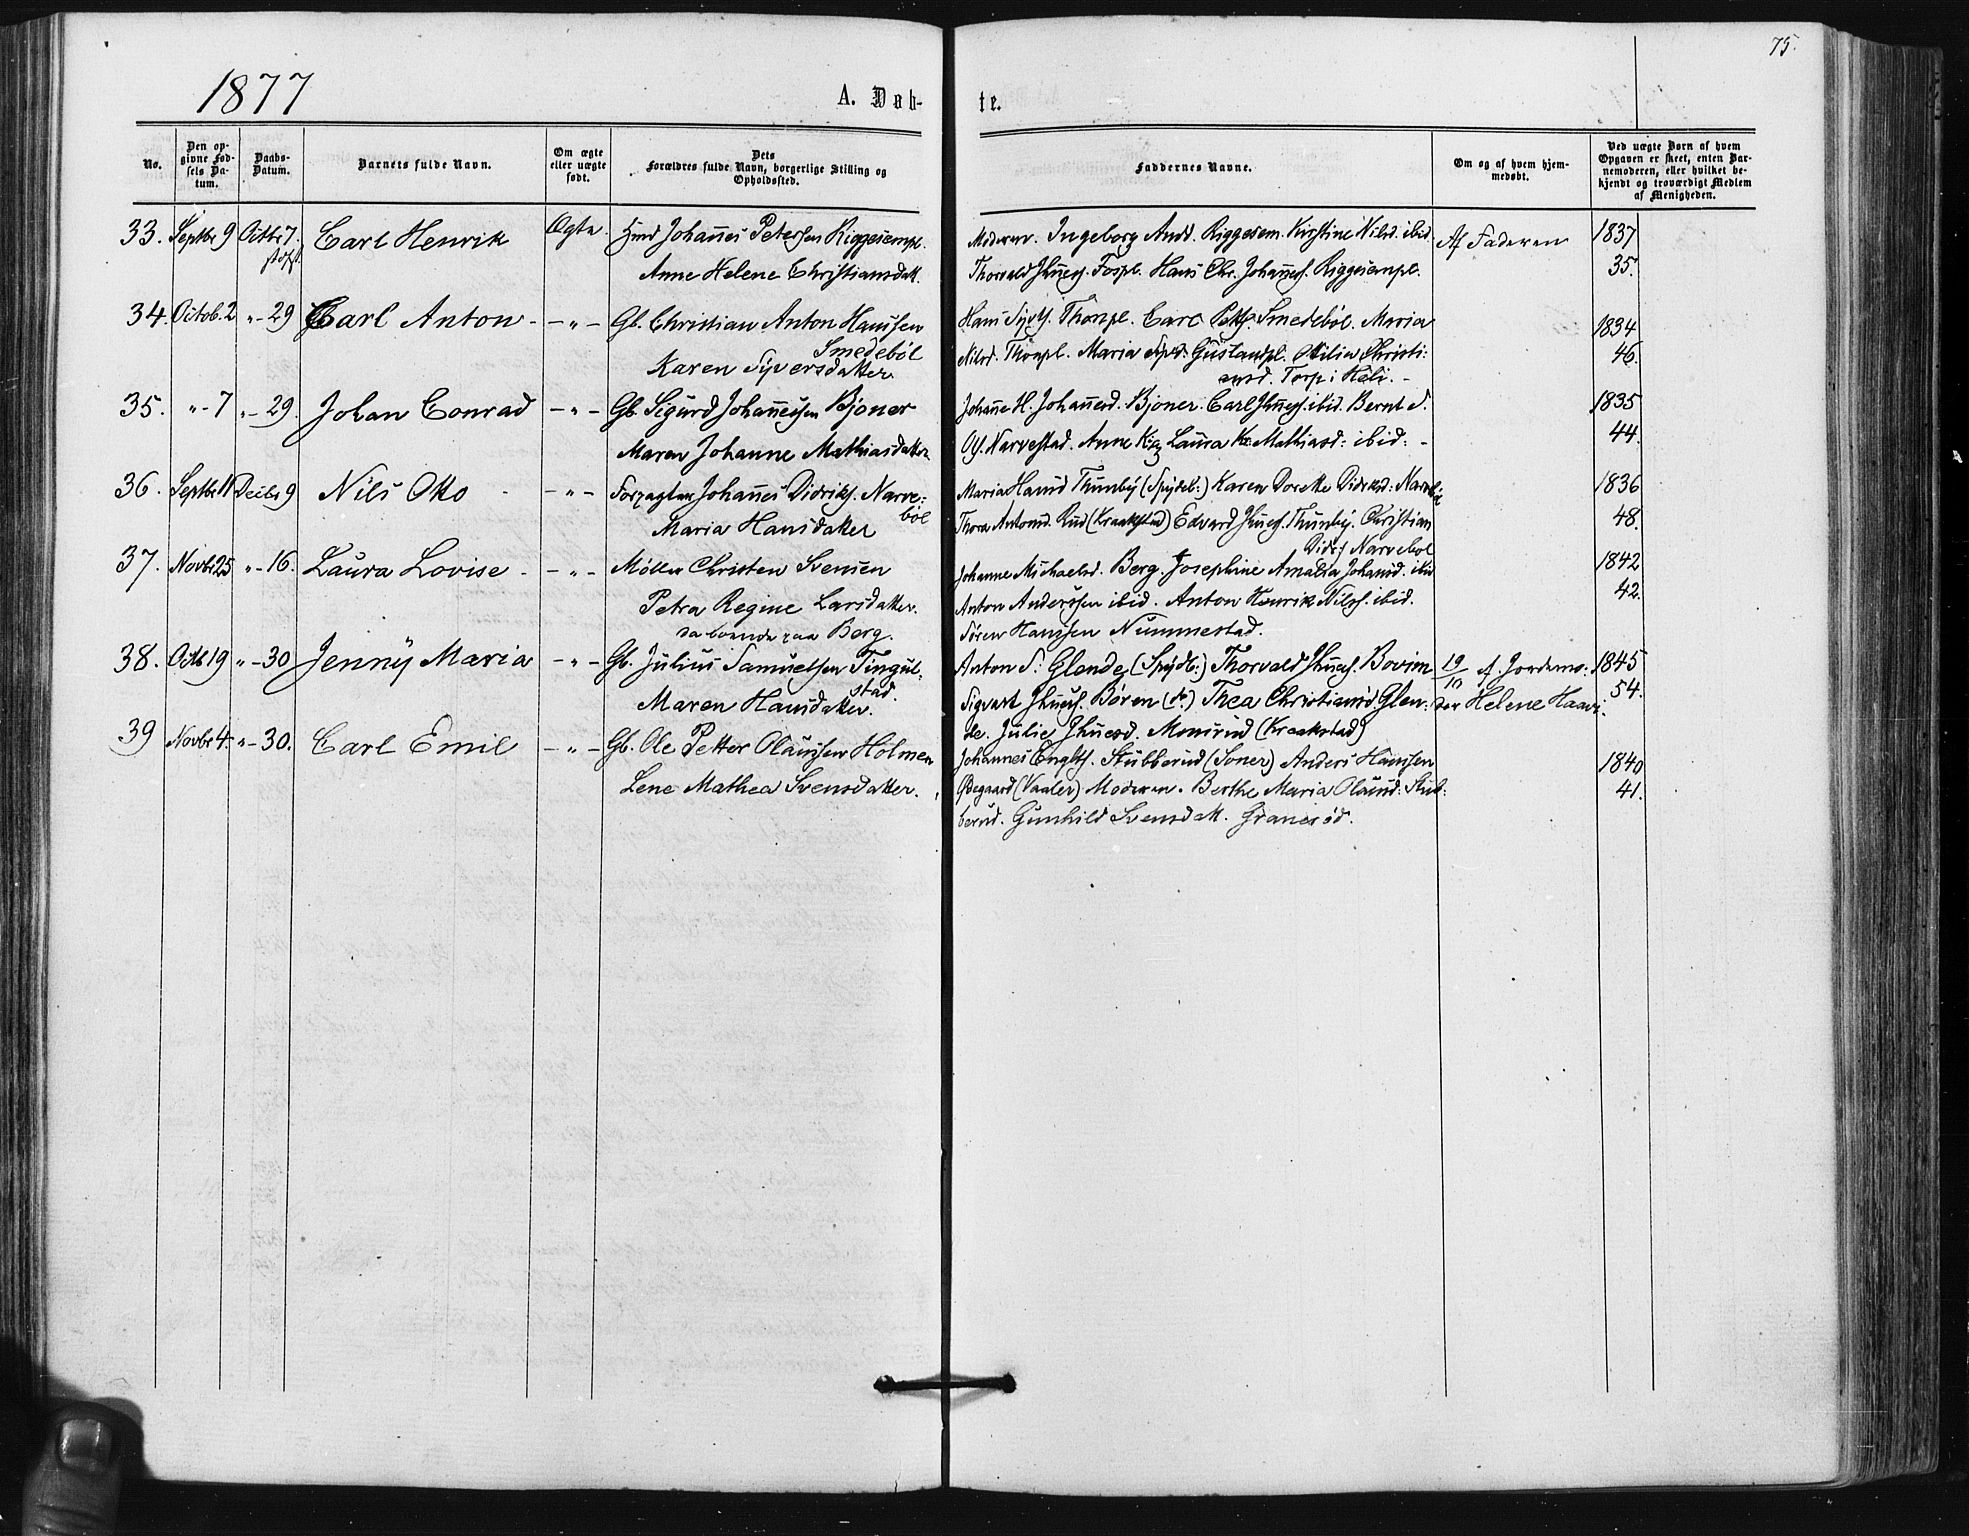 75.
1877
A. Døb-
te.
No.
Den op-
givne Fød-
sels Da-
tum.
Daabs-
Datum.
Barnets fulde Navn.
Om ægte
eller uægte
født.
Dets
Forældres fulde Navn, borgerlige Stilling og
Opholdssted.
Faddernes Navne.
Om og af hvem hjem-
medøbt.
Ved uægte Børn af hvem
Opgaven er skeet, enten Bar-
nemoderen, eller hvilket be-
kjendt og troværdigt Medlem
af Menigheden.
33. Septbr 9 Octbr 7. Carl Henrik Ægte. Hmd Johannes Petersen Riggesempl.
stafst.
Anne Helene Christiansdatt.
Moderen. Ingeborg Andd. Riggesem. Kirstine Nilsd. ibid. Af Faderen 1837
Thorvald Jhness. Fospl. Hans Chr. Johanness. Riggesempl. 35.
34. Octob. 2 " - 29 Carl Anton - - " - Gb. Christian Anton Hanssen
Smedebøl
Karen Syversdatter.
Hans Syvts. Thorspl. Carl Petts. Smedebøl. Maria 1834
Nilsd. Thorspl. Maria Syvd. Guslandpl. Otilia Christi: 46.
ansd. Torp i Hbli. -
35. " - 7 " - 29. Johan Conrad - " - Gb. Sigurd Johannessen Bjoner
Maren Johanne Mathiasdatter
Johanne H. Johannesd. Bjoner. Carl Jhness. ibid. Bernt A. 1835
Ol. Narvestad. Anne K. og Laura Kr. Mathiasd: ibid: - 44.
36. Septbr 11 Decbr 9 Nils Otto - - " - Forpagter Johannes Didriks. Narve:
bøl
Maria Hansdatter
Maria Hansd Thunby (Spydeb:) Karen Dorette Didriksd: Narvebøl 1836
Thora Antonsd. Rud (Kraakstad) Edvard Jhness. Thunby. Christian 48.
Didr. Narvebøl
37. Novbr 25 " - 16. Laura Lovise - - " - Møller Christen Svensen
Petra Regine Larsdatter.
da boende paa Berg.
Johanne Michaelsd. Berg. Josephine Amalia Johansd. ibid 1842
Anton Anderssen ibid. Anton Henrik Nilss. ibid. 42.
Søren Hanssen Nummestad.
38. Octb 19 " - 30 Jenny Maria - " - Gb. Julius Samuelsen Tingul-
stad.
Maren Hansdatter.
Anton S: Glende (Spydb:) Thorvald Jhness. Bovim 19/10 af Jordemo: 1845
Sigvart Jhness. Børen (do.) Thea Christiansd Glen: der Helene Haavi. 54.
de. Julie Jhnesd. Monsrud (Kraakstad)
39 Novbr 4. " - 30. Carl Emil - " - Gb. Ole Petter Olaussen Holmen
Lene Mathea Svensdatter.
Johannes Englts. Stubberud (Soner) Anders Hanssen 1840
Øegaard (Vaaler) Moderen. Berthe Maria Olausd: Stub: 41.
berud. Gunhild Svensdatt. Granerød.